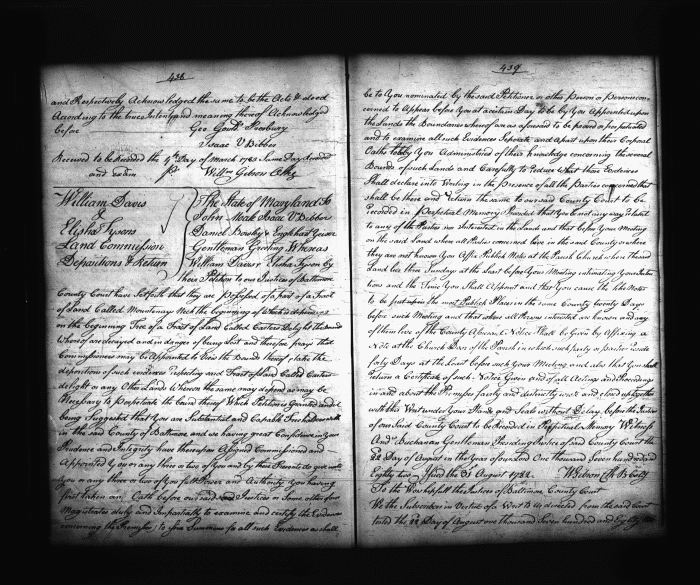 438
and Respectively Acknowledged the same to be the Acts & deed
According to the true Intent and meaning thereof Acknowledged
before Geo. Gouldh Presbury
Isaac V Bibber
Received to be Recorded the 4th Day of March 1783 Same Day Recorded
and Exam pr Willm Gibson Clk
William Davis
&
Elisha Tysons
Land Commission
Depositions & Return
The State of Maryland to
John Moale Isaac V Bibber
Daniel Bowly & Englehard Yeiser
Gentlemen Greeting Whereas
William Davis & Elisha Tyson by
their Petition to our Justices of Baltimore
County Court have Setforth that they are Possessed of a part of a Tract
of Land Called Mountenay Neck the beginning of which
on the beginning Tree of a Tract of Land Called Carters Delight the bounds
Whereof are decayed and in danger of being lost and therefore pray that
Commissioners may be Appointed to View the Bounds thereof & take the
deposition of such evidences respecting said Tract of Land Called Carters
delight or any Other Lands Whereon the same may depend as may be
Necessary to Perpetuate the bounds thereof Which Petition is Granted and it
being Suggested that You are Substantial and Capable Freeholders
in the said County of Baltimore and we having great Confidence in your
Prudence and Integrity have thereupon Assigned Commissioned and
Appointed You or any three or two of You and by these Presents do give unto
you or any three or two of you full Power and Authority You having
first taken an Oath before our said Justices or Some other of our
Magistrates duly and Impartially to examine and certify the Evidence
concerning the Premises to Issue Summons for all such Evidences as shall
439
be to You nominated by the said Petitioner or other Person or Persons con-
cerned to Appear before You at a certain Day to be by You Appointed upon
the Lands the Boundaries whereof are as aforesaid to be proved or perpetuated
and to examine all such Evidences Separate and Apart upon their Corporal
Oaths to be by You Administered of their knowledge concerning the several
Bounds of such Lands and Carefully to Reduce What those Evidences
Shall declare into Writing in the Presence of all the Parties concerned that
shall be there and Return the same to our said County Court to be
recorded in Perpetual Memory Provided that You be not any way related
to any of the Parties nor Interested in the Lands and that before Your Meeting
on the said Land when all Parties concerned live in the said County or where
they are not known You Affix Publick Notes at the Parish Church when the said
Land lies three Sundays at the Least before Your Meeting intimating Your Inten
tions and the Time You Shall Appoint and that You cause the like Notes
to be put upon the most Publick Places in the same County twenty Days
before such Meeting and that where all Persons interested are known and any
of them live of the County Absent Notice Shall be given by Affixing a
Note at the Church Door of the Parish in which such party or parties reside
forty Days at the Least before such Your Meeting and also that You shall
return a Certificate of such Notice Given and of all Actings and Proceedings
in and about the Premises fairly and distinctly wrote and closed up together
with this Writ under Your Hands and Seals without Delay before the Justices
of our Said County Court to be Recorded in Perpetual Memory Witness
Andw Buchanan Gentleman Presiding Justice of Said County Court the
Day of August in the Year of our Lord One thousand Seven hundred and
Eighty two Issd the 31 August 1782 W Gibson Clk
To the Worshipfull the Justices of Baltimore County Court
We the Subscribers in Virtue of a Writ to Us directed from the said Court
tested the Day of August one thousand Seven hundred and Eighty